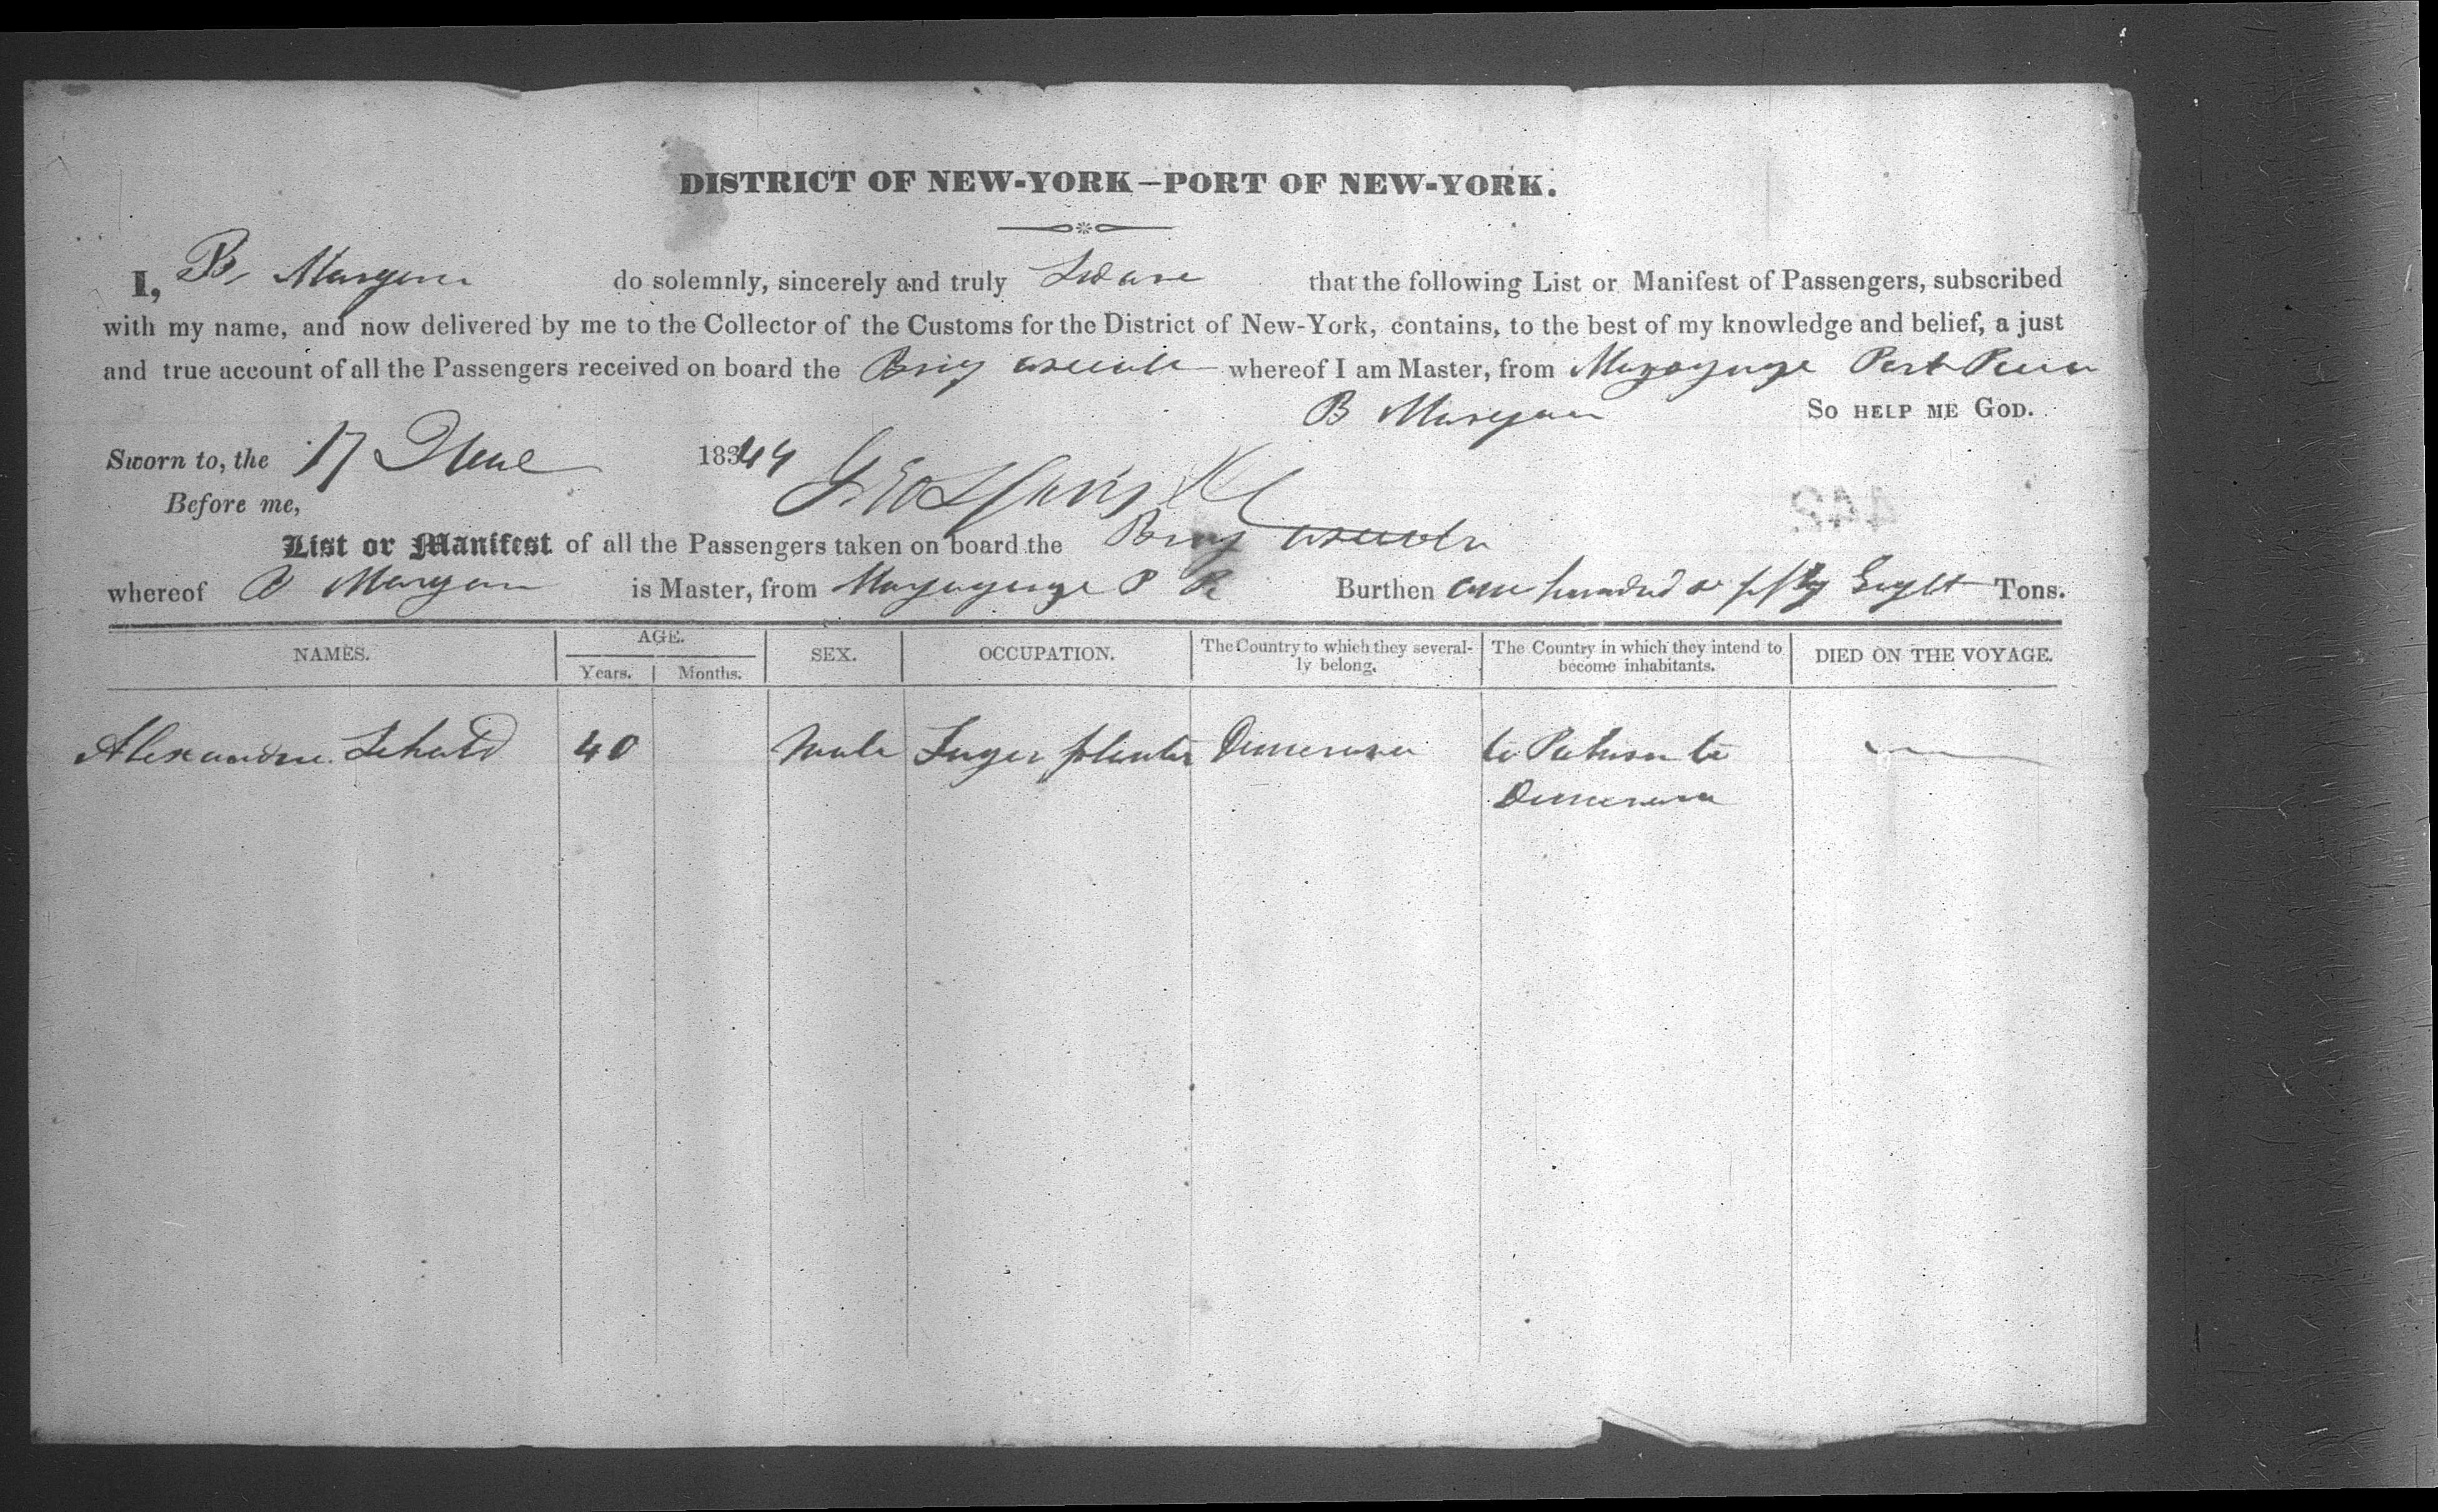 DISTRICT OF NEW-YORK—PORT OF NEW-YORK.
I, B Morgan do solemnly, sincerely and truly Sware that the following List or Manifest of Passengers, subscribed
with my name, and now delivered by me to the Collector of the Customs for the District of New-York, contains, to the best of my knowledge and belief, a just
and true account of all the Passengers received on board the Brig whereof I am Master, from
B Morgan So HELP ME GOD.
Sworn to, the 17 June 18344
Before me,
List or Manifest of all the Passengers taken on board the Brig
whereof B Morgan is Master, from P R Burthen one hundred & fifty Eight Tons.
NAMES. AGE. SEX. OCCUPATION. The Country to which they several- The Country in which they intend to DIED ON THE VOYAGE.
Years. Months. ly belong. become inhabitants.
40 Male Suger planter Demerara to Return to
Demerara